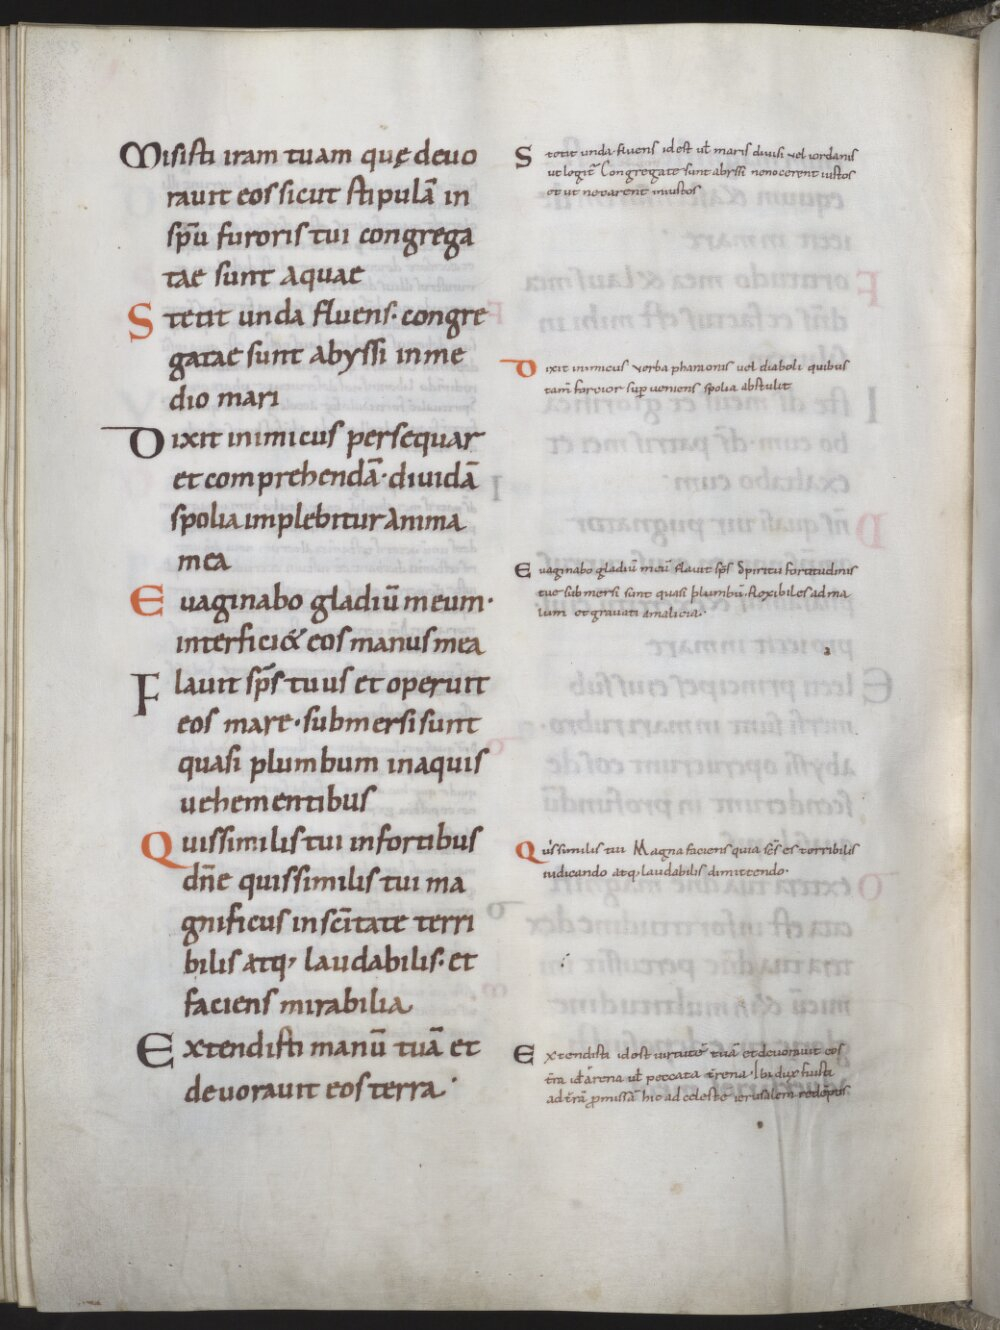 Misisti iram tuam quę deuo
rauit eos sicut stipulā in
sp̄u furoris tui congrega
tae sunt aquae
Stetit unda fluens· congre
gatae sunt abyssi in me
dio mari
Dixit inimicus persequar
et comprehendā· diuidā
spolia implebitur anima
mea
Euaginabo gladiū meum·
interfici& eos manus mea
Flauit sp̄s tuus et operuit
eos mare· submersi sunt
quasi plumbum in aquis
uehementibus
Quis similis tui in fortibus
dn̄e quis similis tui ma
gnificus in scītate terri
bilis atq, laudabilis· et
faciens mirabilia
Extendisti manū tuā et
deuorauit eos terra·
Stetit unda fluens id est ut maris diuisi uel iordanis
ut legit̄ Congregate sunt abyssi ne nocerent iustos
et ut necarent iniustos
Dixit inimicus uerba pharaonis uel diaboli quibus
tam̄ fortior sup ueniens spolia abstulit
Euaginabo gladiū meū flauit sp̄s Spiritu fortitudinis
tue submersi sunt quasi plumbū· flexibiles ad ma
lum et grauati a malicia·
Quis similis tui Magna faciens quia sc̄s es terribilis
iudicando atq, laudabilis dimittendo·
Extendisti id est uirtutē tuā et deuorauit eos
t̄ra arena peccata t̄rena· Ibi dux fuisti
ad t̄rā pmissā hic ad celestē ierusalem redēptis·